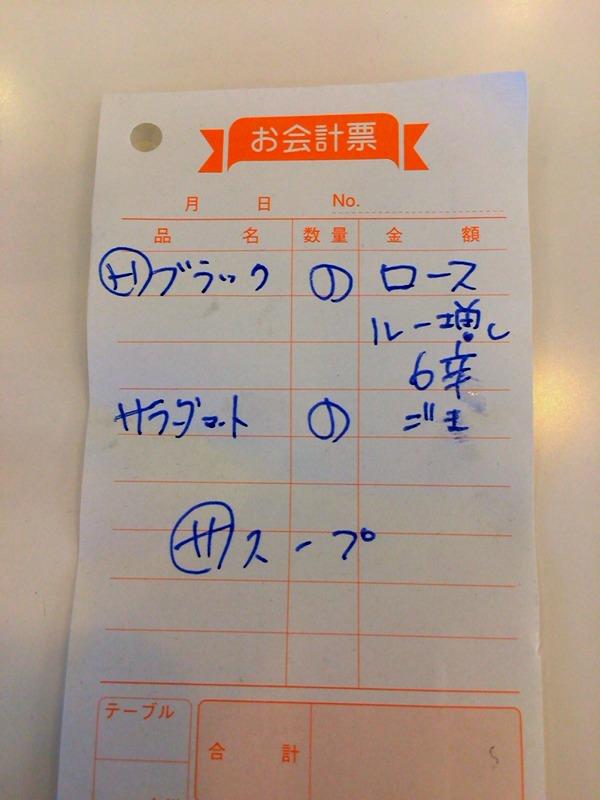 お会計票
月 日 No.
品名 数量 金額
ブラック ① ロース
ルー増し
6辛
サラダセット ① ゴマ
サ スープ
テーブル
合計